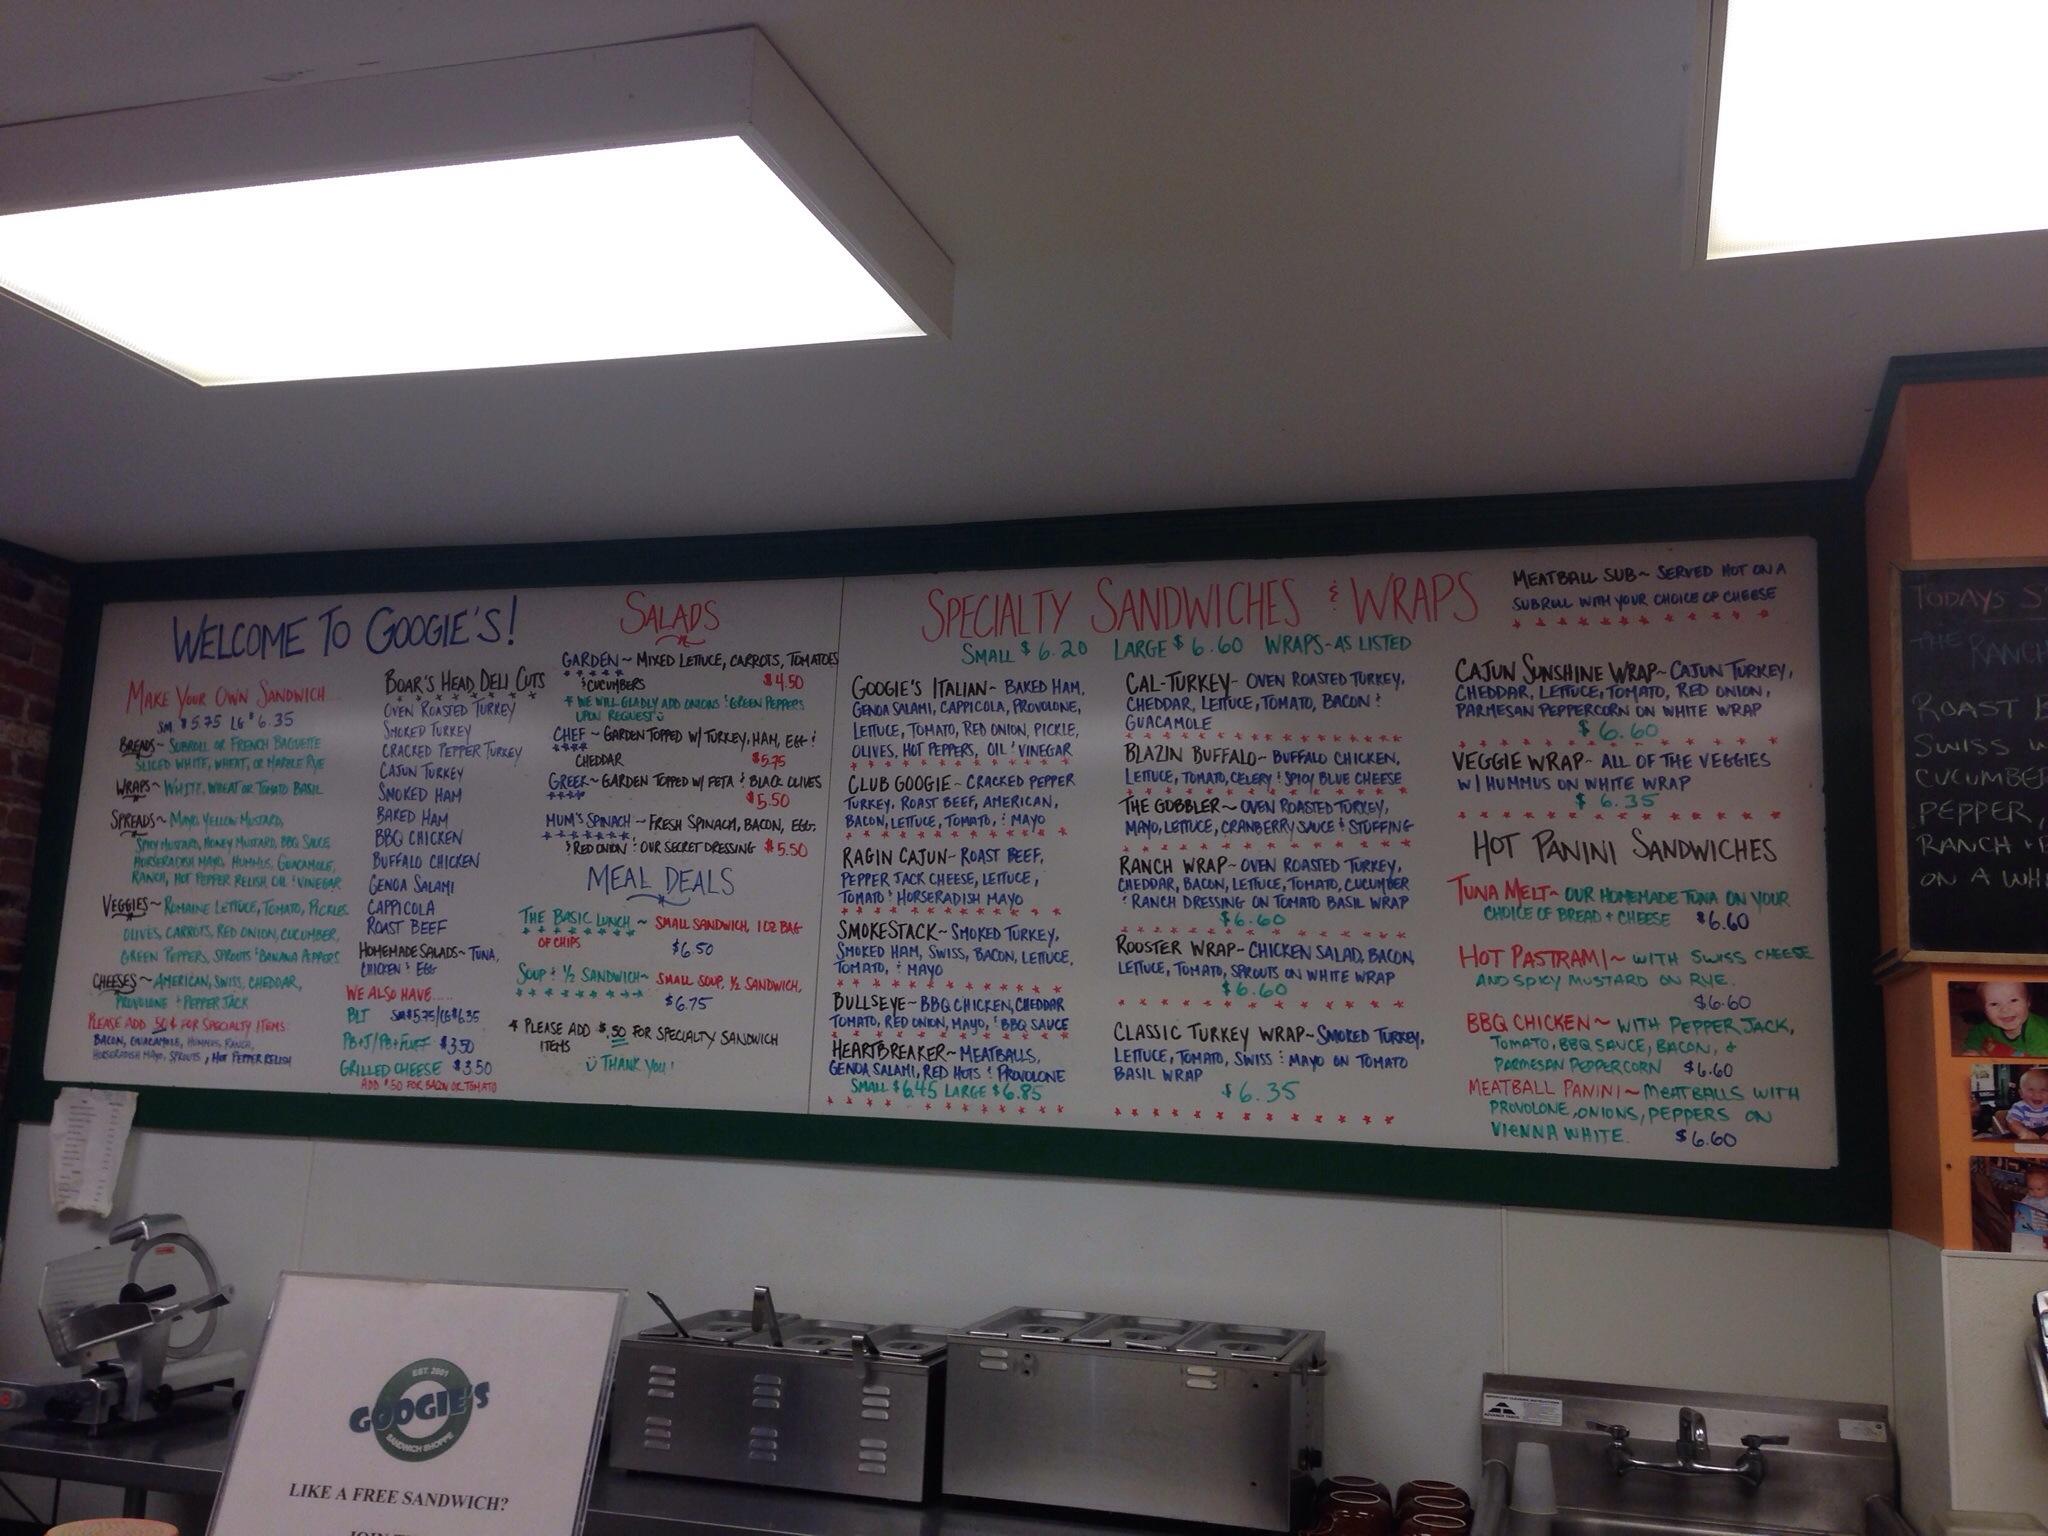 WELCOME TO GOOGIE'S!
MAKE YOUR OWN SANDWICH
SM. $5.75 LG $6.35
BREADS~ SUBROLL OR FRENCH BAGUETTE
SLICED WHITE, WHEAT, OR MARBLE RYE
WRAPS~ WHITE, WHEAT OR TOMATO BASIL
SPREADS~ MAYO, YELLOW MUSTARD,
SPICY MUSTARD, HONEY MUSTARD, BBQ SAUCE
HORSERADISH MAYO, HUMMUS, GUACAMOLE,
RANCH, HOT PEPPER RELISH, OIL & VINEGAR
VEGGIES~ ROMAINE LETTUCE, TOMATO, PICKLES
OLIVES, CARROTS, RED ONION, CUCUMBER,
GREEN PEPPERS, SPROUTS & BANANA PEPPERS
CHEESES~ AMERICAN, SWISS, CHEDDAR,
PROVOLONE + PEPPER JACK
PLEASE ADD 50¢ FOR SPECIALTY ITEMS:
BACON, GUACAMOLE, HUMMUS, RANCH,
HORSERADISH MAYO, SPROUTS, HOT PEPPER RELISH
BOAR'S HEAD DELI CUTS
OVEN ROASTED TURKEY
SMOKED TURKEY
CRACKED PEPPER TURKEY
CAJUN TURKEY
SMOKED HAM
BAKED HAM
BBQ CHICKEN
BUFFALO CHICKEN
GENOA SALAMI
CAPPICOLA
ROAST BEEF
HOMEMADE SALADS~ TUNA,
CHICKEN & EGG
WE ALSO HAVE.....
BLT SM $5.75/LG $6.35
PB+J/PB+FLUFF $3.50
GRILLED CHEESE $3.50
ADD $.50 FOR BACON OR TOMATO
SALADS
GARDEN~ MIXED LETTUCE, CARROTS, TOMATOES
& CUCUMBERS $4.50
* WE WILL GLADLY ADD ONIONS & GREEN PEPPERS
UPON REQUEST
CHEF~ GARDEN TOPPED W/ TURKEY, HAM, EGG &
CHEDDAR $5.75
GREEK~ GARDEN TOPPED W/ FETA & BLACK OLIVES
$5.50
MUM'S SPINACH~ FRESH SPINACH, BACON, EGG,
& RED ONION & OUR SECRET DRESSING $5.50
MEAL DEALS
THE BASIC LUNCH~ SMALL SANDWICH, 1 OZ BAG
OF CHIPS $6.50
SOUP & 1/2 SANDWICH~ SMALL SOUP, 1/2 SANDWICH,
$6.75
* PLEASE ADD $.50 FOR SPECIALTY SANDWICH
ITEMS
THANK YOU!
SPECIALTY SANDWICHES & WRAPS
SMALL $6.20 LARGE $6.60 WRAPS-AS LISTED
GOOGIE'S ITALIAN~ BAKED HAM,
GENOA SALAMI, CAPPICOLA, PROVOLONE,
LETTUCE, TOMATO, RED ONION, PICKLE,
OLIVES, HOT PEPPERS, OIL & VINEGAR
CLUB GOOGIE~ CRACKED PEPPER
TURKEY, ROAST BEEF, AMERICAN,
BACON, LETTUCE, TOMATO, & MAYO
RAGIN CAJUN~ ROAST BEEF,
PEPPER JACK CHEESE, LETTUCE,
TOMATO & HORSERADISH MAYO
SMOKESTACK~ SMOKED TURKEY,
SMOKED HAM, SWISS, BACON, LETTUCE,
TOMATO, & MAYO
BULLSEYE~ BBQ CHICKEN, CHEDDAR
TOMATO, RED ONION, MAYO, & BBQ SAUCE
HEARTBREAKER~ MEATBALLS,
GENOA SALAMI, RED HOTS & PROVOLONE
SMALL $6.45 LARGE $6.85
CAL-TURKEY~ OVEN ROASTED TURKEY,
CHEDDAR, LETTUCE, TOMATO, BACON &
GUACAMOLE
BLAZIN BUFFALO~ BUFFALO CHICKEN,
LETTUCE, TOMATO, CELERY & SPICY BLUE CHEESE
THE GOBBLER~ OVEN ROASTED TURKEY,
MAYO, LETTUCE, CRANBERRY SAUCE & STUFFING
RANCH WRAP~ OVEN ROASTED TURKEY,
CHEDDAR, BACON, LETTUCE, TOMATO, CUCUMBER
& RANCH DRESSING ON TOMATO BASIL WRAP
$6.60
ROOSTER WRAP~ CHICKEN SALAD, BACON,
LETTUCE, TOMATO, SPROUTS ON WHITE WRAP
$6.60
CLASSIC TURKEY WRAP~ SMOKED TURKEY,
LETTUCE, TOMATO, SWISS & MAYO ON TOMATO
BASIL WRAP
$6.35
MEATBALL SUB~ SERVED HOT ON A
SUBROLL WITH YOUR CHOICE OF CHEESE
CAJUN SUNSHINE WRAP~ CAJUN TURKEY,
CHEDDAR, LETTUCE, TOMATO, RED ONION,
PARMESAN PEPPERCORN ON WHITE WRAP
$6.60
VEGGIE WRAP~ ALL OF THE VEGGIES
W/ HUMMUS ON WHITE WRAP
$6.35
HOT PANINI SANDWICHES
TUNA MELT~ OUR HOMEMADE TUNA ON YOUR
CHOICE OF BREAD + CHEESE $6.60
HOT PASTRAMI~ WITH SWISS CHEESE
AND SPICY MUSTARD ON RYE.
$6.60
BBQ CHICKEN~ WITH PEPPER JACK,
TOMATO, BBQ SAUCE, BACON, &
PARMESAN PEPPERCORN $6.60
MEATBALL PANINI~ MEATBALLS WITH
PROVOLONE, ONIONS, PEPPERS ON
VIENNA WHITE. $6.60
TODAYS
THE RANCH
ROAST
SWISS
CUCUMBE
PEPPER,
RANCH +
ON A WH
EST. 2001
GOOGIE'S
SANDWICH SHOPPE
LIKE A FREE SANDWICH?